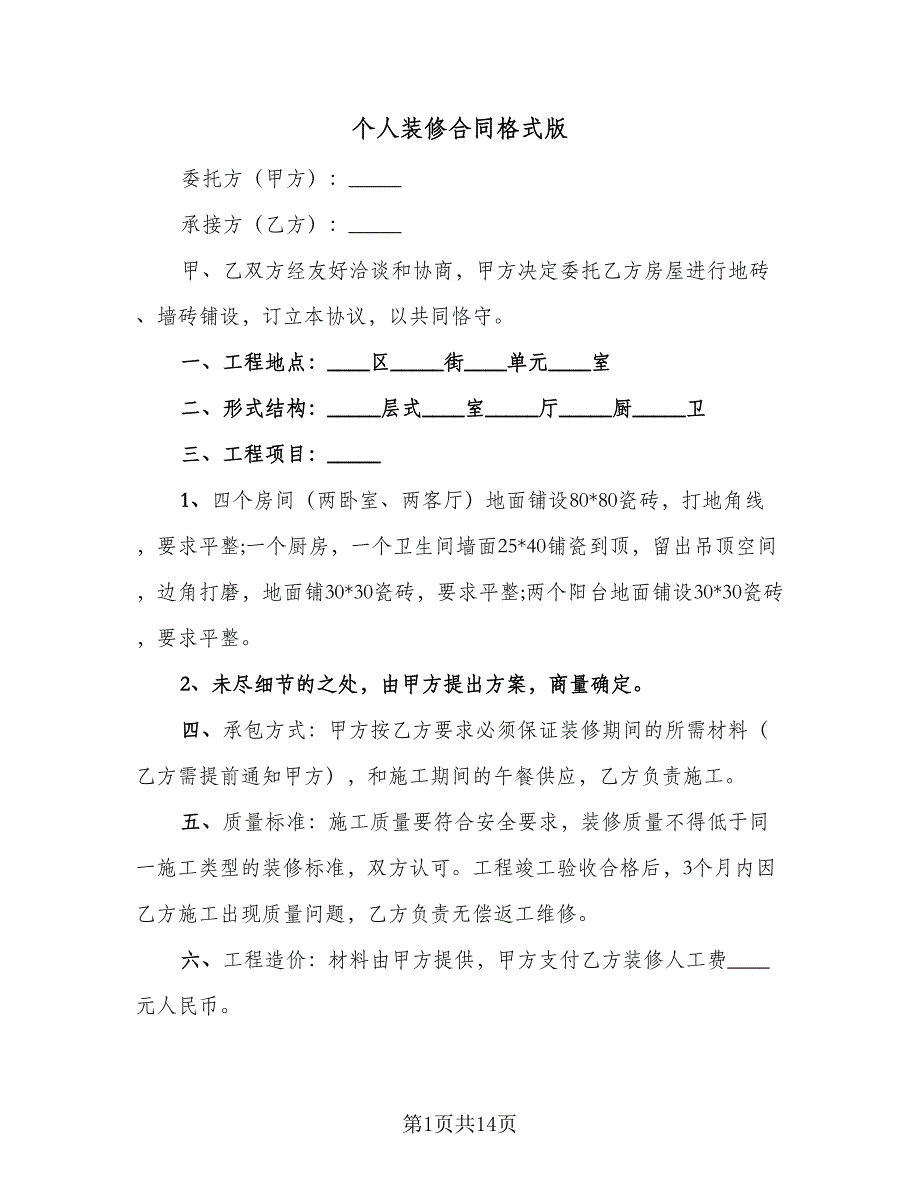 个人装修合同格式版
委托方（甲方）：_____
承接方（乙方）：_____
甲、乙双方经友好洽谈和协商，甲方决定委托乙方房屋进行地砖
、墙砖铺设，订立本协议，以共同恪守。
一、工程地点：____区_____街____单元____室
二、形式结构：_____层式____室_____厅_____厨_____卫
三、工程项目：_____
1、四个房间（两卧室、两客厅）地面铺设80*80瓷砖，打地角线
，要求平整;一个厨房，一个卫生间墙面25*40铺瓷到顶，留出吊顶空间
，边角打磨，地面铺30*30瓷砖，要求平整;两个阳台地面铺设30*30瓷砖
，要求平整。
2、未尽细节的之处，由甲方提出方案，商量确定。
四、承包方式：甲方按乙方要求必须保证装修期间的所需材料（
乙方需提前通知甲方），和施工期间的午餐供应，乙方负责施工。
五、质量标准：施工质量要符合安全要求，装修质量不得低于同
一施工类型的装修标准，双方认可。工程竣工验收合格后，3个月内因
乙方施工出现质量问题，乙方负责无偿返工维修。
六、工程造价：材料由甲方提供，甲方支付乙方装修人工费____
元人民币。
第1页共14页